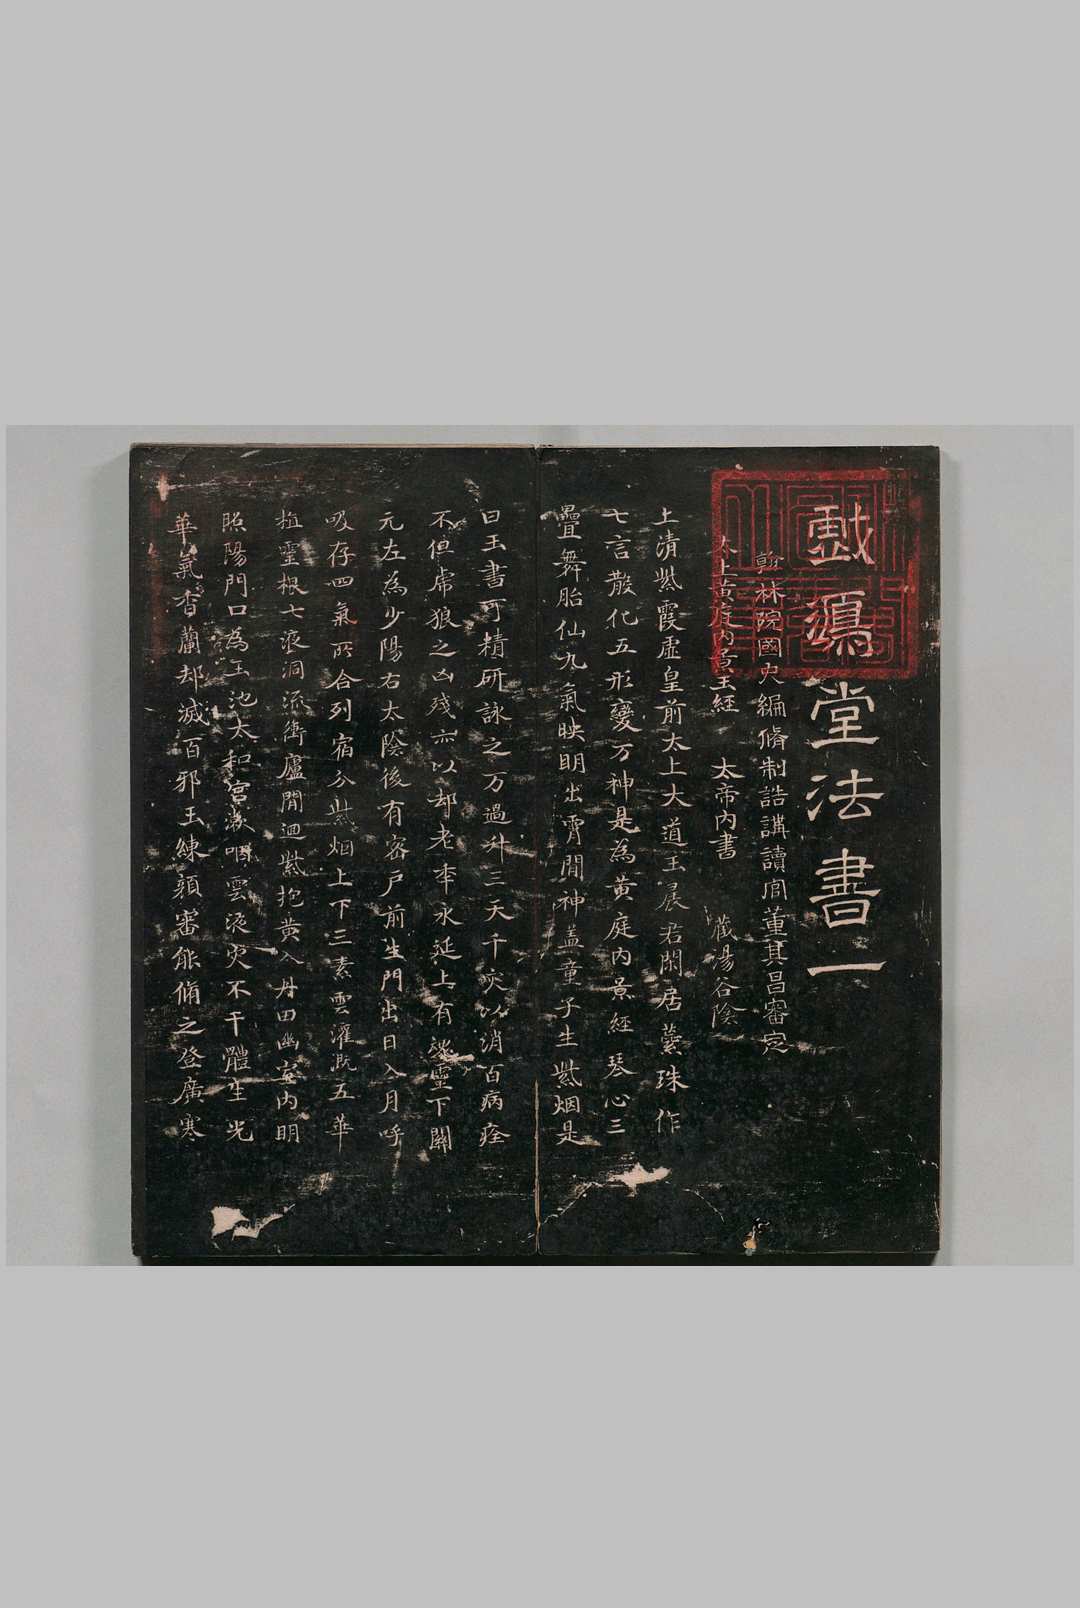 戲鴻堂法書一
翰林院國史編脩制誥講讀官董其昌審定
太上黃庭內景玉經 太帝內書 藏暘谷陰
上清紫霞虛皇前太上大道玉晨君閑居蘂珠作
七言散化五形變万神是為黃庭內景經琴心三
疊舞胎仙九氣映明出霄間神盖童子生紫烟是
曰玉書可精研詠之万過升三天千灾以消百病痊
不但虎狼之凶殘亦以却老年永延上有魂靈下關
元左為少陽右太陰後有密戶前生門出日入月呼
吸存四氣所合列宿分紫烟上下三素雲灌溉五華
植靈根七液洞流衝廬間迴紫抱黃入丹田幽室內明
照陽門口為玉池太和宮漱咽靈液灾不干體生光
華氣香蘭却滅百邪玉練顏審能脩之登廣寒